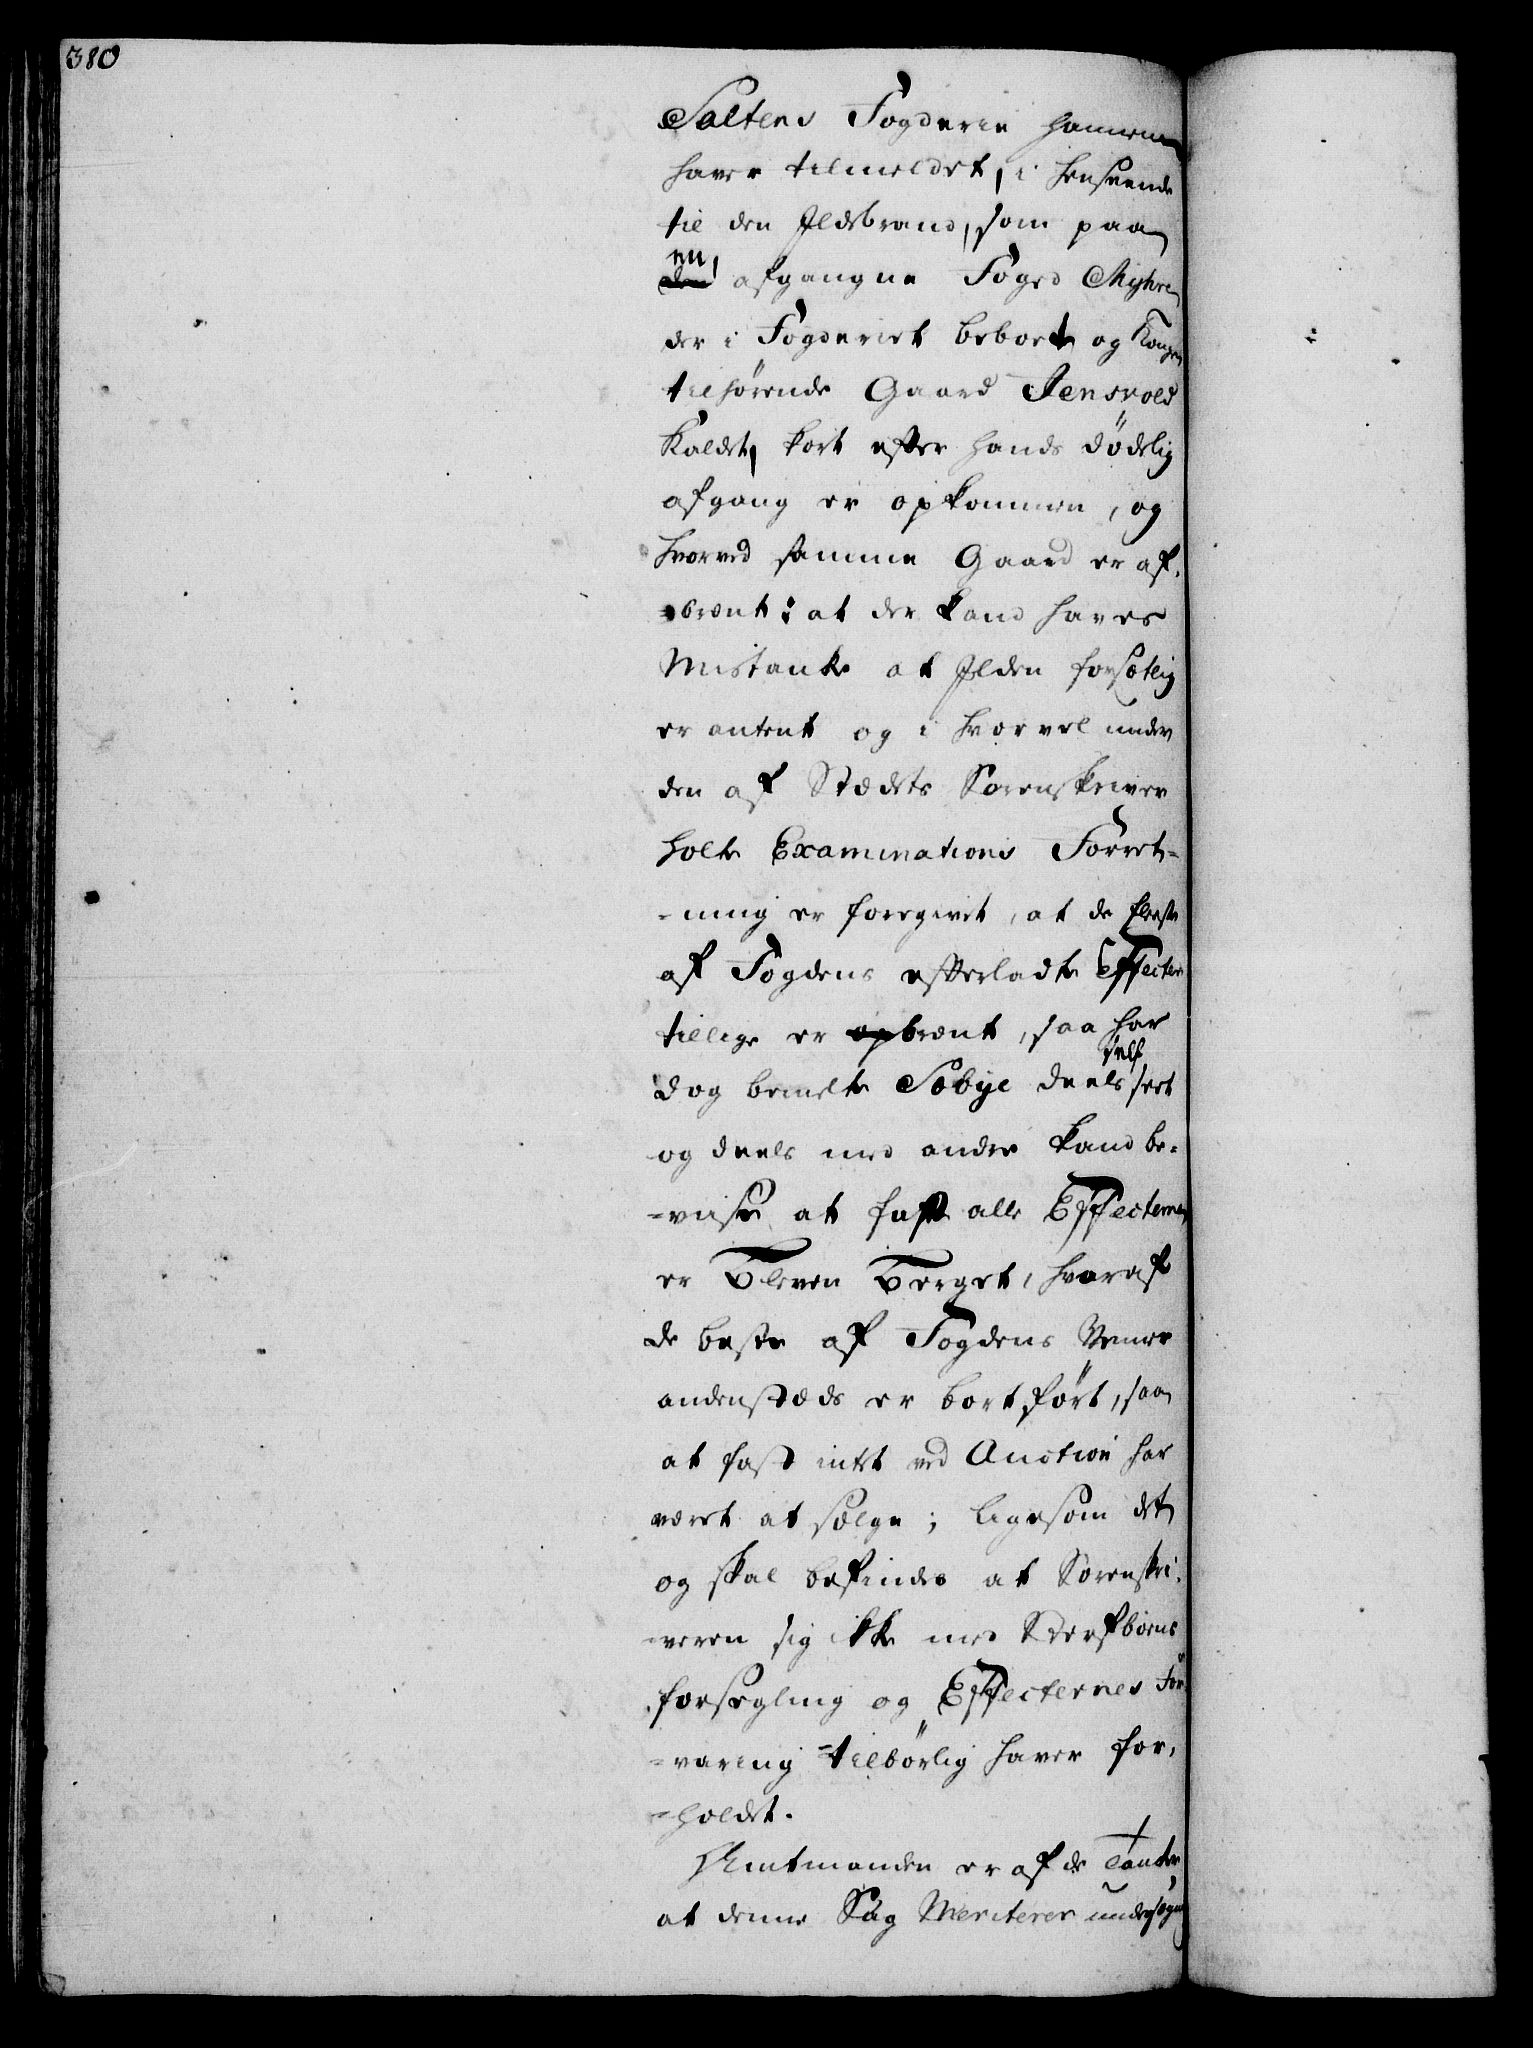 380
Saltens Fogderie hannem
haver tilmeldet, i henseende
til den Ildebrand, som paa
en, afgangne Foged Myhre
der i Fogderiet beboede og Kongen
tilhørende Gaard Jensvold
kaldet, kort efter hands dødelig
afgang er opkommen, og
hvorved samme Gaard er af-
brent: at der kand haves
Mistanke at Ilden forsætlig
er antent og i hvor vel under
den af Stædets Sorenskriver
holte Examinations Forret-
-ning er foregivet, at de fleeste
af Fogdens efterladte Effecter
tillige er opbrent, saa har
dog bemelte Søbye deels self
og deels med andre kand be-
-vise at fast alle Effecterne
er bleven berget, hvoraf
de beste af Fogdens Venner
andenstæds er bortført, saa
at fast intet ved Auction har
været at sælge; ligesom det
og skal befindes at Sorenskri-
-veren sig ikke med Sterfboens
forsegling og Effecternes For-
-varing tilbørlig haver for-
-holdet.
Amtmanden er af de Tanker
at denne Sag Meriterer undersøgning